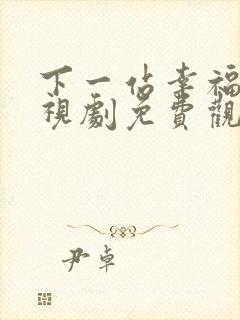 下一站幸福
視劇免費觀
尹卓